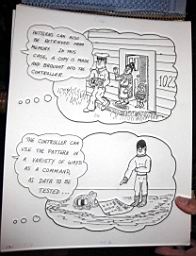 PATTERNS CAN ALSO
BE RETRIEVED FROM
MEMORY. IN THIS
CASE, A COPY IS MADE
AND BROUGHT INTO THE
CONTROLLER.
102
THE CONTROLLER CAN
USE THE PATTERN IN
A VARIETY OF WAYS:
AS A COMMAND,
AS DATA TO BE
TESTED...